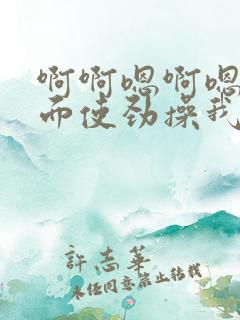 啊啊嗯啊嗯
而使劲操我
許志華
未经同意禁止转载